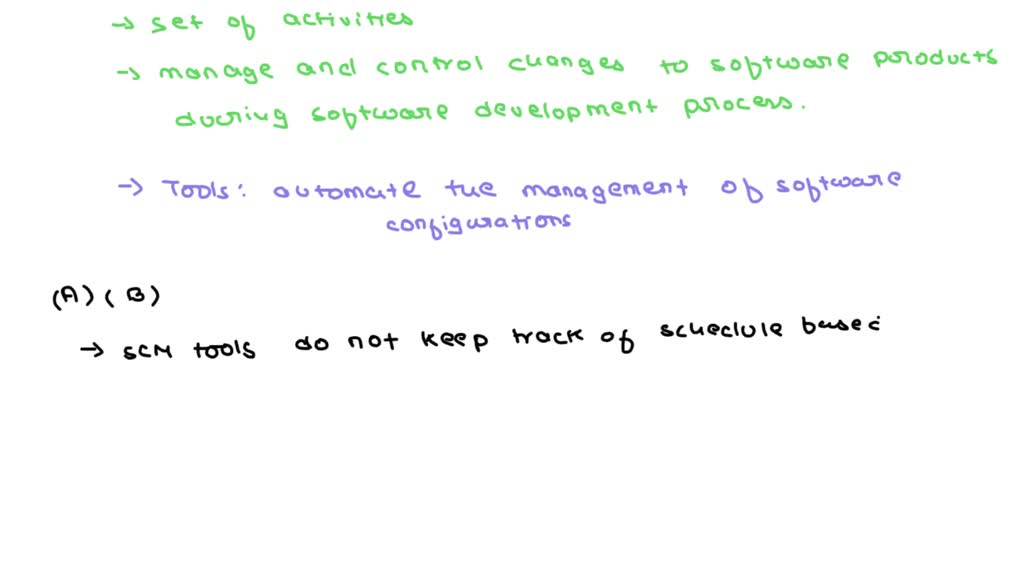 → set of activities
→ manage and control changes to software products
during software development process.
→ Tools: automate the management of software
configurations
(A) (B)
→ SCM tools do not keep track of schedule based